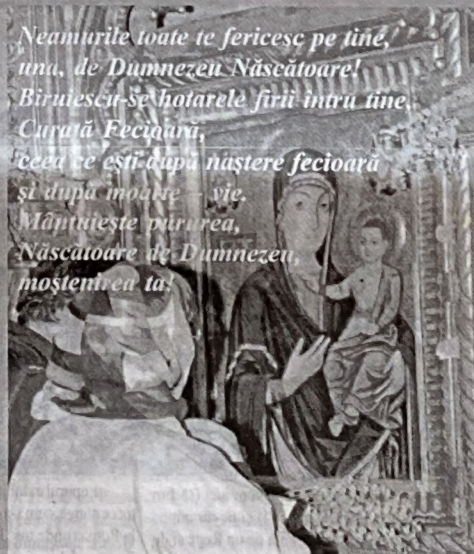 Neamurile toate te fericesc pe tine,
una, de Dumnezeu Născătoare!
Biruiescu-se hotarele firii întru tine,
Curată Fecioară,
ceea ce ești după naștere fecioară
și după moarte - vie.
Mântuiește pururea,
Născătoare de Dumnezeu,
moștenirea ta!